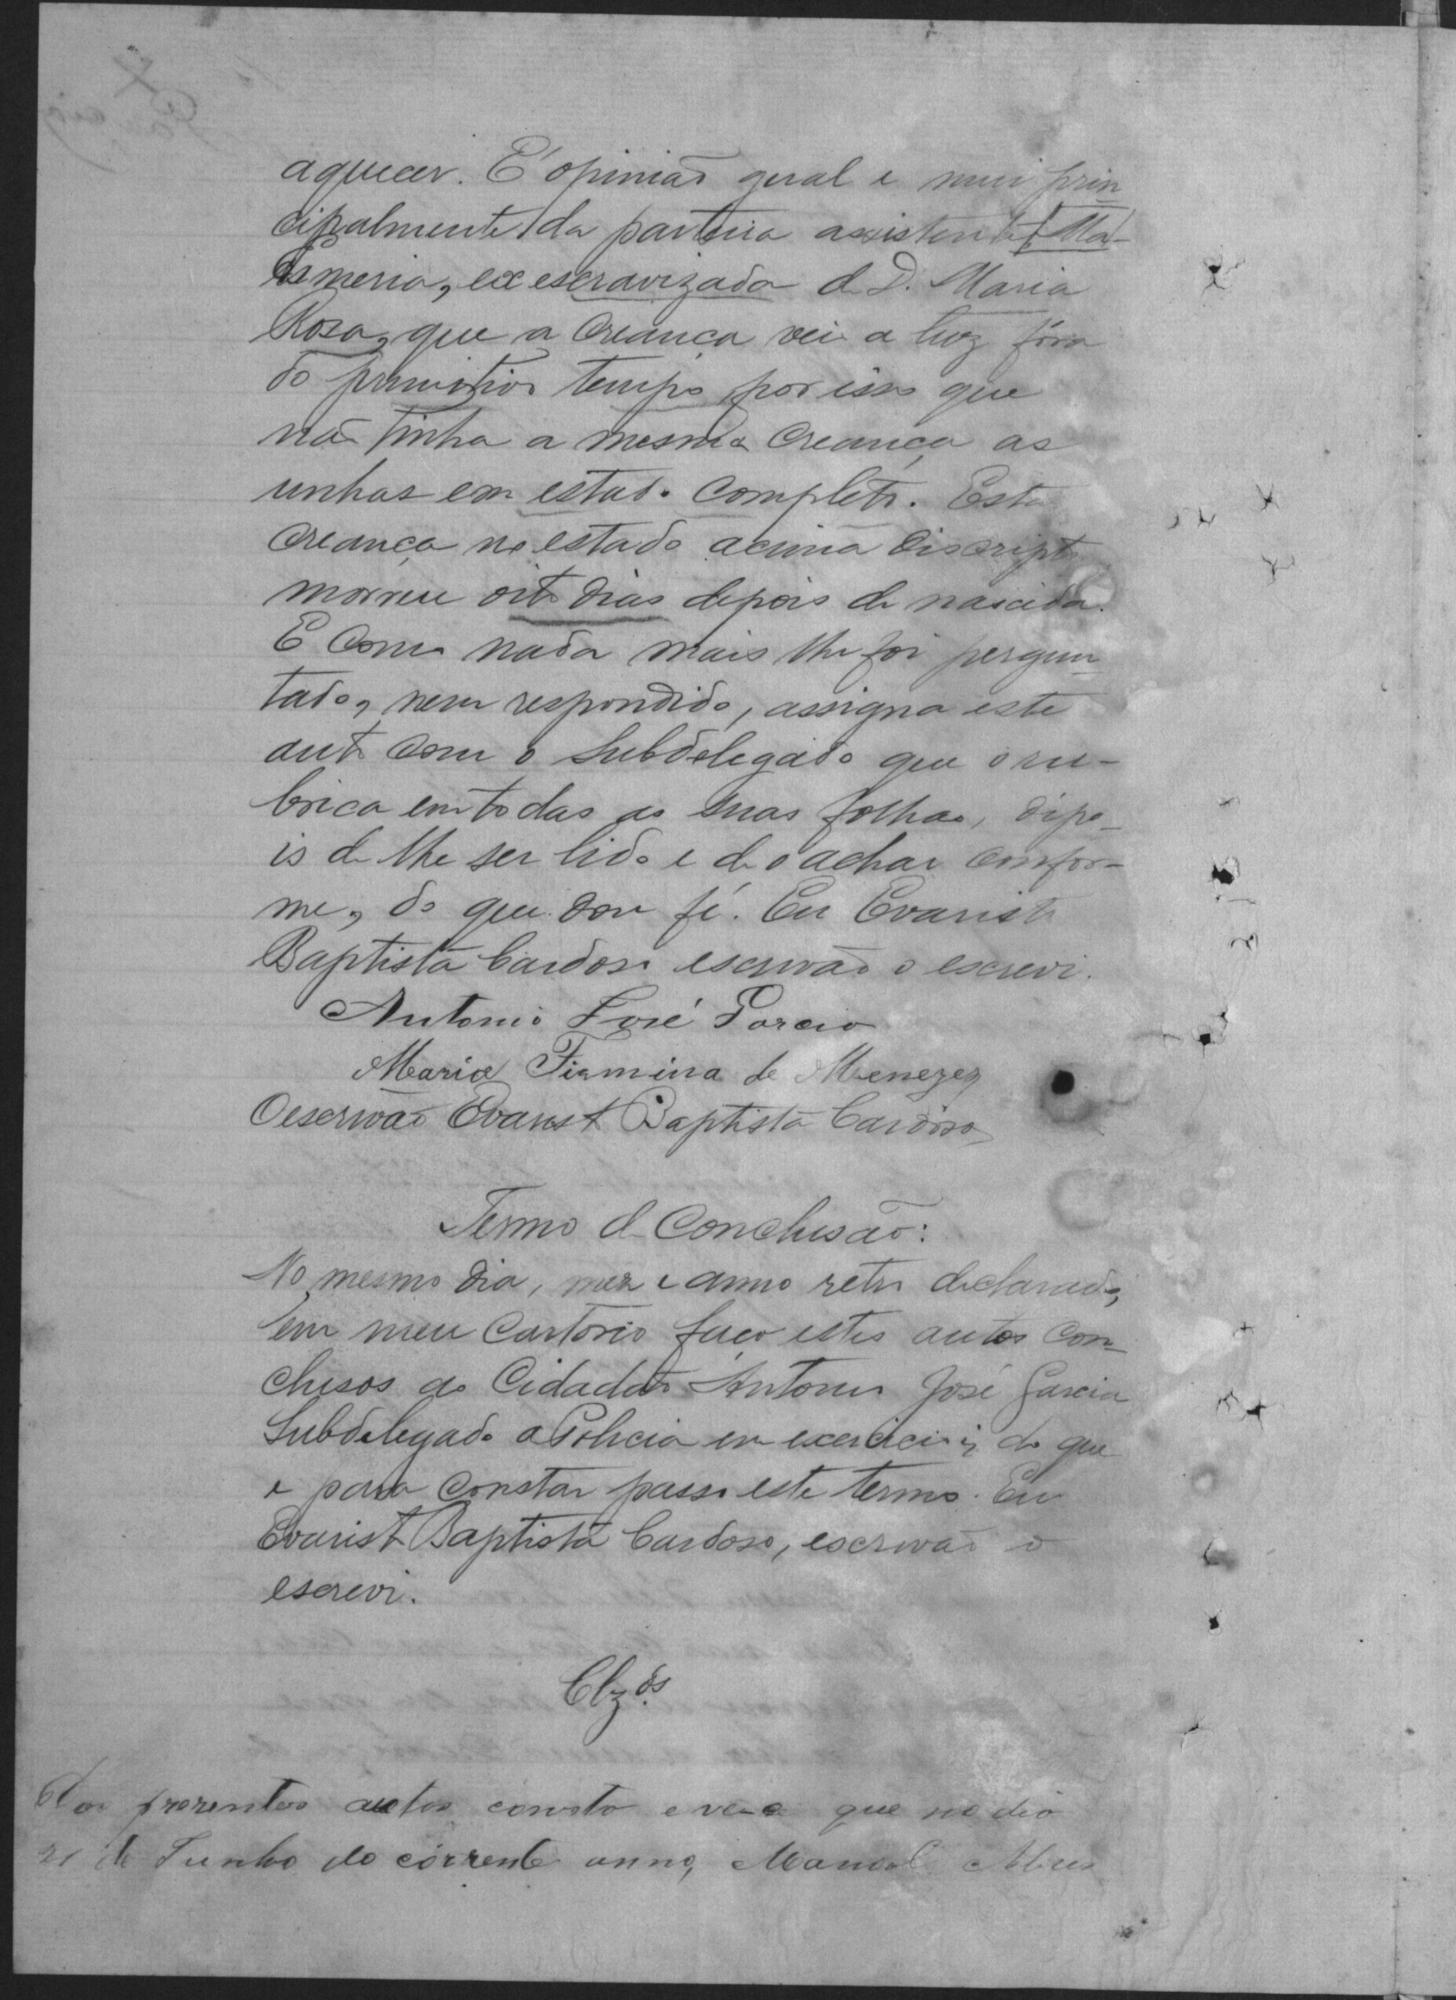 aquecer. É opinião geral e mui prin
cipalmente da parteira assistente Ma-
Esmeria, ex escravizada de D. Maria
Rosa, que a creança veio a luz fóra
do tempo por isso que
não tinha a mesma creança as
unhas em estado completo. Esta
creança no estado acima discripto
morreu oito dias depois de nascida.
E como nada mais lhe foi pergun
tado, nem respondido, assigna este
auto com o Subdelegado que o ru-
brica em todas as suas folhas, depo-
is de lhe ser lido e de o achar confor-
me, do que dou fé. Eu Evaristo
Baptista Cardoso escrivão o escrevi.
Antonio José Garcia
Maria Firmina de Menezes
O escrivão Evaristo Baptista Cardoso
Termo de Conclusão:
No mesmo dia, mez e anno retro declarado,
em meu Cartorio faço estes autos con-
clusos ao Cidadão Antonio José Garcia
Subdelegado de Policia em exercicio; do que
e para constar passo este termo. Eu
Evaristo Baptista Cardoso, escrivão o
escrevi.
Clzos.
presentes autos consta e que no dia
21 de Junho do corrente anno, Manoel